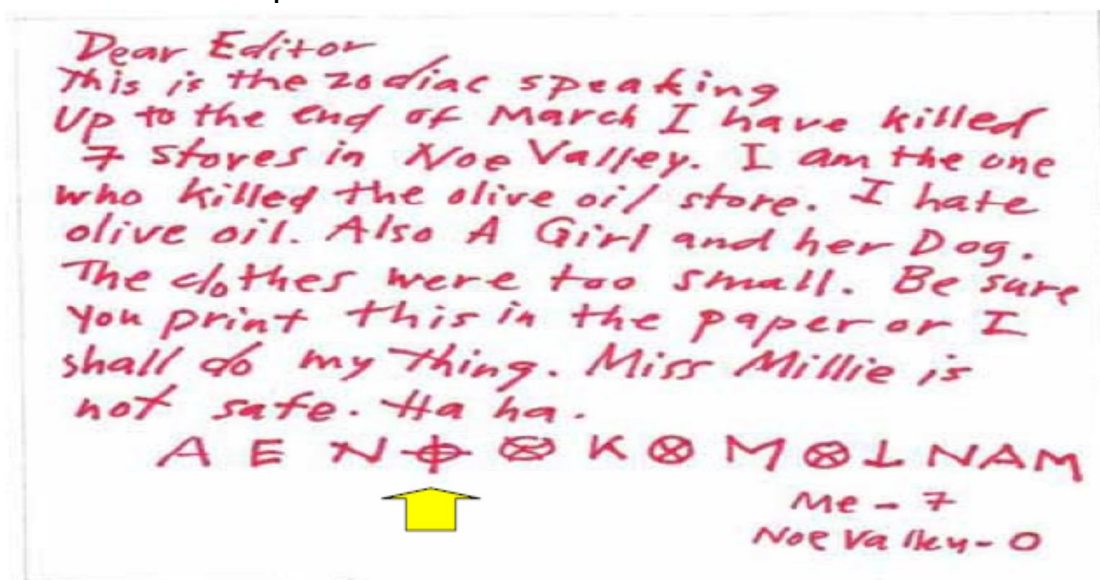 Dear Editor
This is the zodiac speaking
Up to the end of March I have killed
7 stores in Noe Valley. I am the one
who killed the olive oil store. I hate
olive oil. Also A Girl and her Dog.
The clothes were too small. Be sure
you print this in the paper or I
shall do my thing. Miss Millie is
not safe. Ha ha.
A E N ⌖ ⊗ K ⊗ M ⊗ ⊥ N A M
Me - 7
Noe Valley - 0